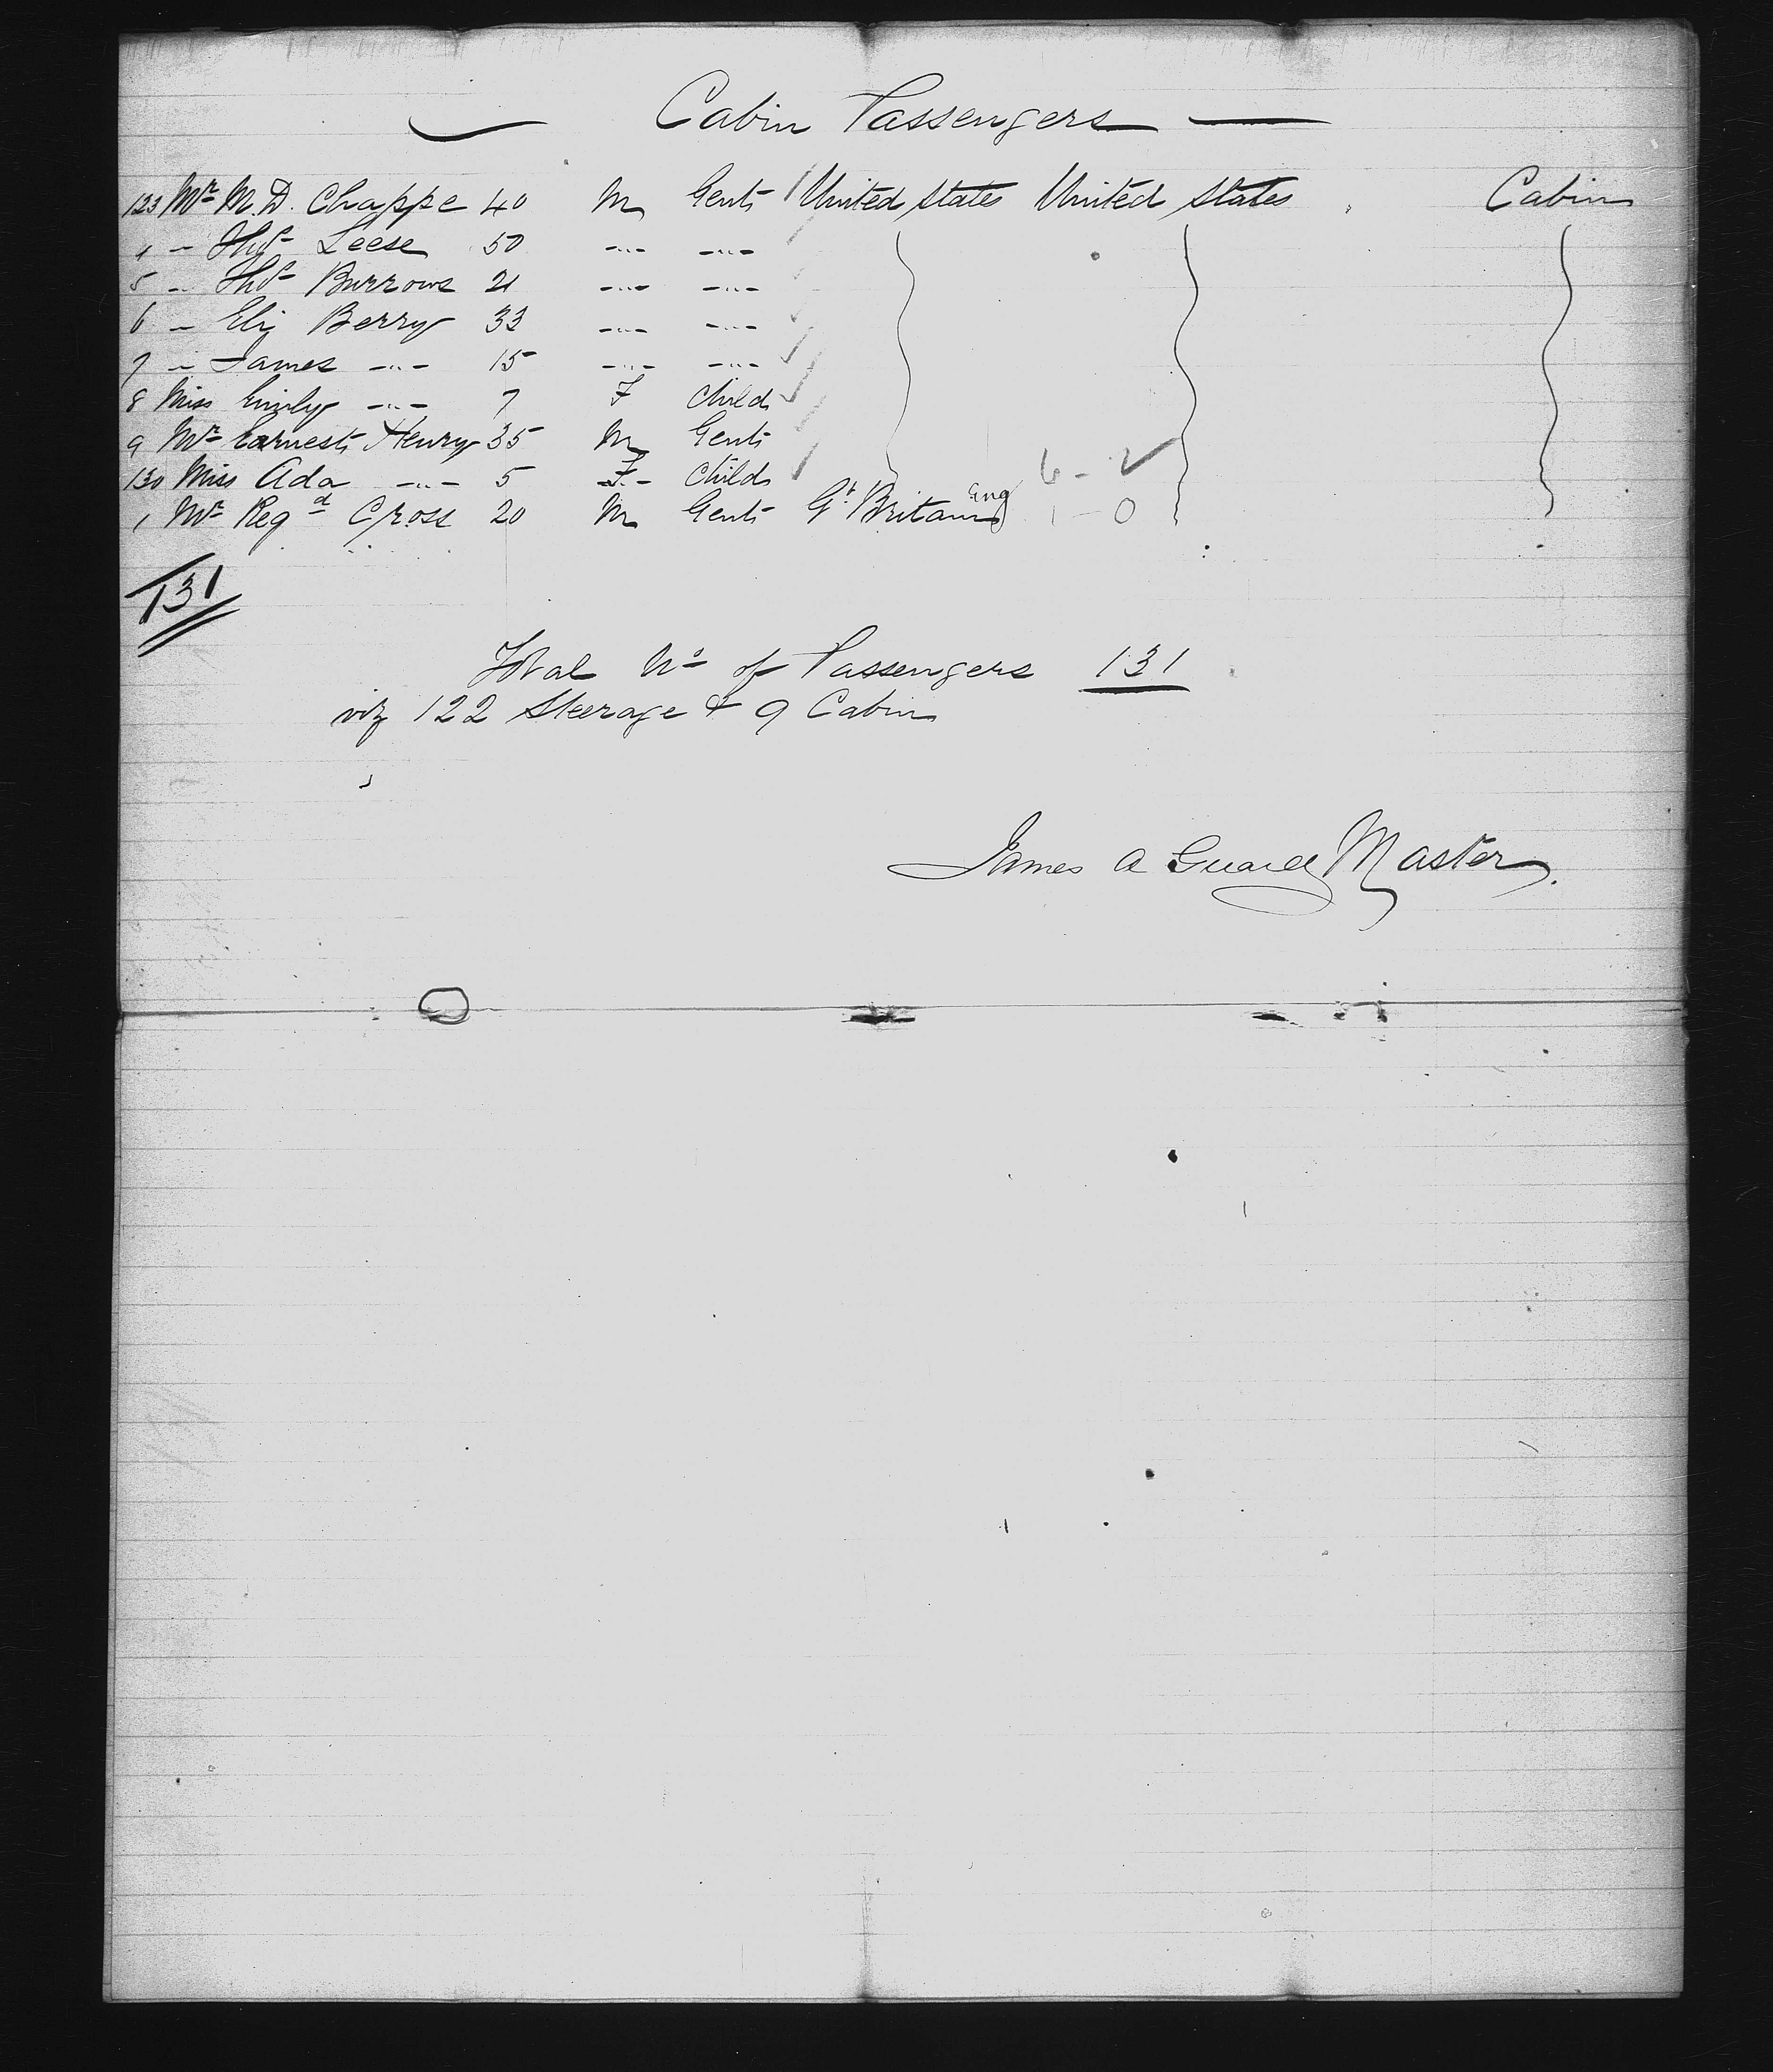 Cabin Passengers
123 Mr M.D. Chappe 40 M Gent United States United States Cabin
4 - Thos Leese 50 -"- -"-
5 - Thos Burrows 21 -"- -"-
6 - Eliz Berry 33 -"- -"-
7 - James -"- 15 -"- -"-
8 Miss Emily -"- 7 F Child
9 Mr Earnest Henry 35 M Gent
130 Miss Ada -"- 5 F Child 6 - 2
1 Mr Regd Cross 20 M Gent Gt Britain Eng 1 - 0
131
Total No of Passengers 131
viz 122 Steerage & 9 Cabin
James A Master